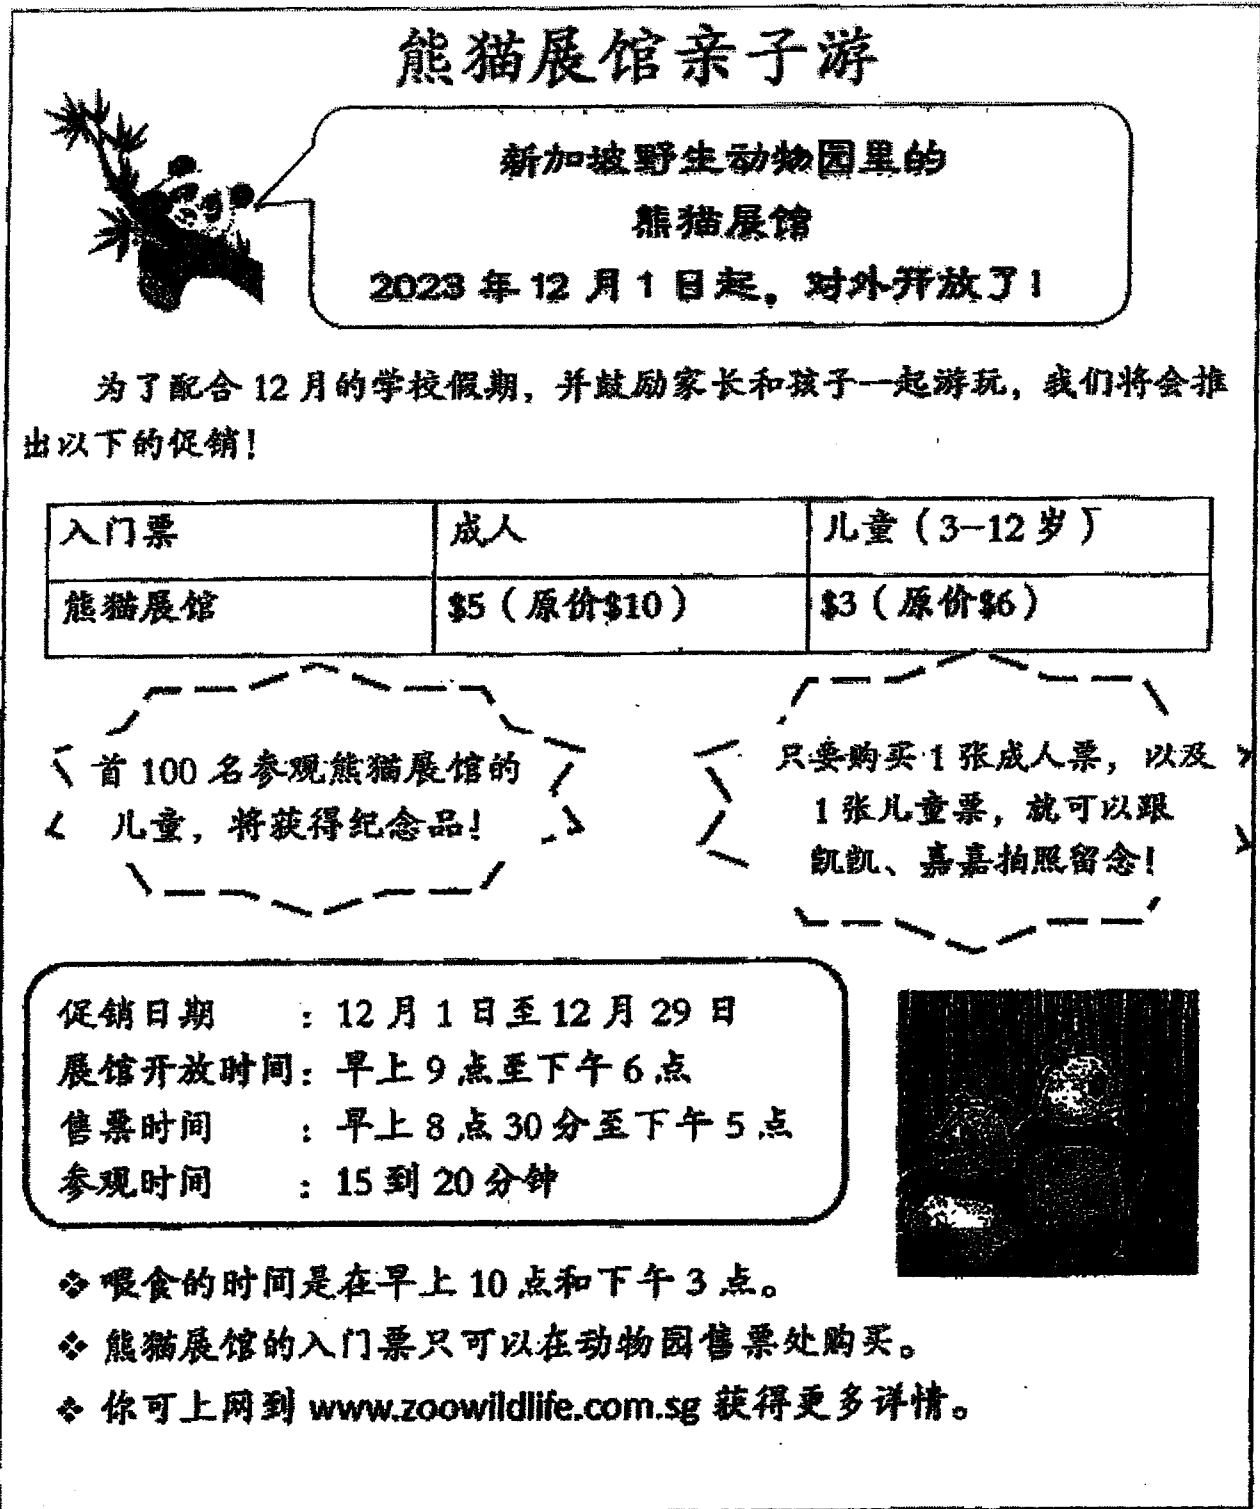 熊猫展馆亲子游
新加坡野生动物园里的
熊猫展馆
2023 年 12 月 1 日起，对外开放了！
为了配合 12 月的学校假期，并鼓励家长和孩子一起游玩，我们将会推
出以下的促销！
入门票 成人 儿童（3-12 岁）
熊猫展馆 $5（原价$10） $3（原价$6）
首 100 名参观熊猫展馆的
儿童，将获得纪念品！
只要购买 1 张成人票，以及
1 张儿童票，就可以跟
凯凯、嘉嘉拍照留念！
促销日期 ：12 月 1 日至 12 月 29 日
展馆开放时间：早上 9 点至下午 6 点
售票时间 ：早上 8 点 30 分至下午 5 点
参观时间 ：15 到 20 分钟
❖ 喂食的时间是在早上 10 点和下午 3 点。
❖ 熊猫展馆的入门票只可以在动物园售票处购买。
❖ 你可上网到 www.zoowildlife.com.sg 获得更多详情。